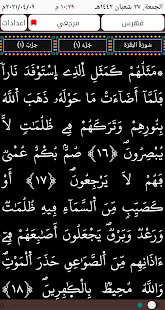 الجمعة، ٢٧ شعبان ١٤٤٢ هـ ١٠:٢٩ م ٢٠٢١/٠٤/٠٩ م
فهرس مرجعي إعدادات
سورة البقرة جزء (١) حزب (١)
مَثَلُهُمْ كَمَثَلِ الَّذِے اِسْتَوْقَدَ نَاراٗ
فَلَمَّا أَضَاءَتْ مَا حَوْلَهُۥ ذَهَبَ اَللَّهُ
بِنُورِهِمْ وَتَرَكَهُمْ فِے ظُلُمَٰتٖ لَّا
يُبْصِرُونَۖ (١٦) صُمُّۢ بُكْمٌ عُمْيٞ
فَهُمْ لَا يَرْجِعُونَۖ (١٧) أَوْ
كَصَيِّبٖ مِّنَ اَلسَّمَآءِ فِيهِ ظُلُمَٰتٞ
وَرَعْدٞ وَبَرْقٞ يَجْعَلُونَ أَصَٰبِعَهُمْ فِےٓ
ءَاذَانِهِم مِّنَ اَلصَّوَٰعِقِ حَذَرَ اَلْمَوْتِۖ
وَاللَّهُ مُحِيطُۢ بِالْكٰ۪فِرِينَۖ (١٨)